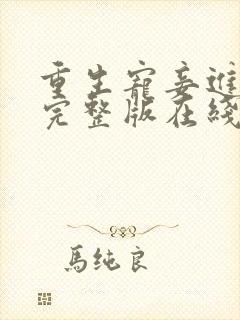 重生寵妾進
完整版在綫
馬純良